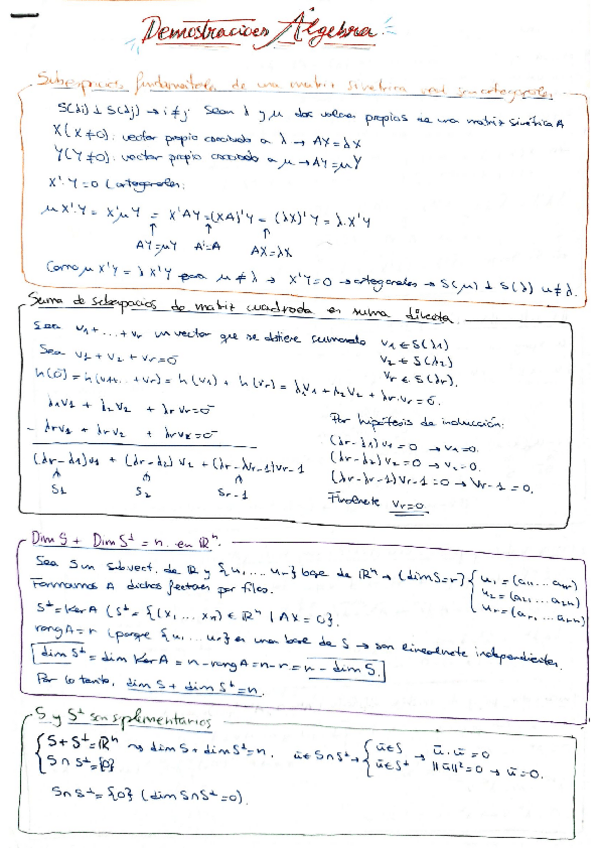 Demostraciones Álgebra
Subespacios fundamentales de una matriz simétrica real son ortogonales
S(λi) ⊥ S(λj) → i ≠ j. Sean λ y μ dos valores propios de una matriz simétrica A
X (X≠0): vector propio asociado a λ → AX = λX
Y (Y≠0): vector propio asociado a μ → AY = μY
X'·Y = 0 (ortogonales:
μX'Y = X'μY = X'AY = (XA)'Y = (λX)'Y = λ·X'Y
AY=μY A'=A AX=λX
Como μX'Y = λX'Y para μ ≠ λ → X'Y = 0 → ortogonales → S(μ) ⊥ S(λ) μ ≠ λ.
Suma de subespacios de matriz cuadrada es suma directa
Sea v1 + ... + vr un vector que se obtiene sumando v1 ∈ S(λ1)
v2 ∈ S(λ2)
vr ∈ S(λr).
Sea v1 + v2 + vr = 0
h(0) = h(v1+... + vr) = h(v1) + h(vr) = λ1v1 + λ2v2 + λr·vr = 0.
λ1v1 + λ2v2 + λrvr = 0
- λrv1 + λrv2 + λrvr = 0
(λr-λ1)v1 + (λr-λ2)v2 + (λr-λr-1)vr-1
S1 S2 Sr-1
Por hipótesis de inducción:
(λr-λ1)v1 = 0 → v1 = 0.
(λr-λ2)v2 = 0 → v2 = 0.
(λr-λr-1)vr-1 = 0 → vr-1 = 0.
Finalmente vr = 0.
Dim S + Dim S⊥ = n. en ℝⁿ.
Sea S un subvect. de ℝ y {u1, ... ur} base de ℝⁿ → (dim S = r) { u1 = (a11 ... a1r)
u2 = (a21 ... a2n)
ur = (ar1, ... arn)
Formamos A dichos por filas.
S⊥ = Ker A (S⊥ = {(x1, ... xn) ∈ ℝⁿ | AX = 0}.
rang A = r (porque {u1, ... ur} es una base de S → son linealmente independientes.
dim S⊥ = dim Ker A = n - rang A = n - r = n - dim S.
Por lo tanto, dim S + dim S⊥ = n.
S y S⊥ son suplementarios
{ S + S⊥ = ℝⁿ → dim S + dim S⊥ = n. ū ∈ S∩S⊥ → { ū ∈ S → ū·ū = 0
S ∩ S⊥ = {0} ū ∈ S⊥ ||ū||² = 0 → ū = 0.
S ∩ S⊥ = {0} (dim S∩S⊥ = 0).